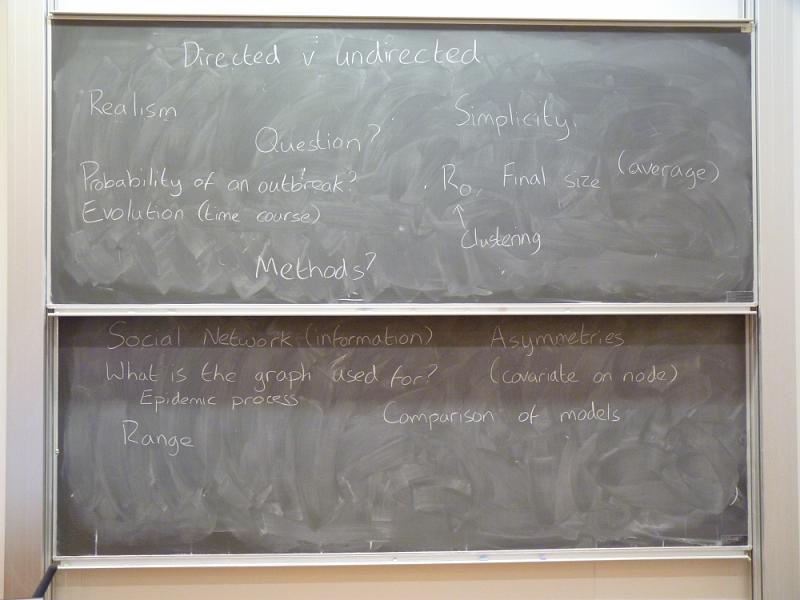 Directed v undirected
Realism
Simplicity.
Question?
Probability of an outbreak?
R0, Final size (average)
Evolution (time course)
↑
Clustering
Methods?
Social Network (information)
Asymmetries
What is the graph used for?
(covariate on node)
Epidemic process
Comparison of models
Range